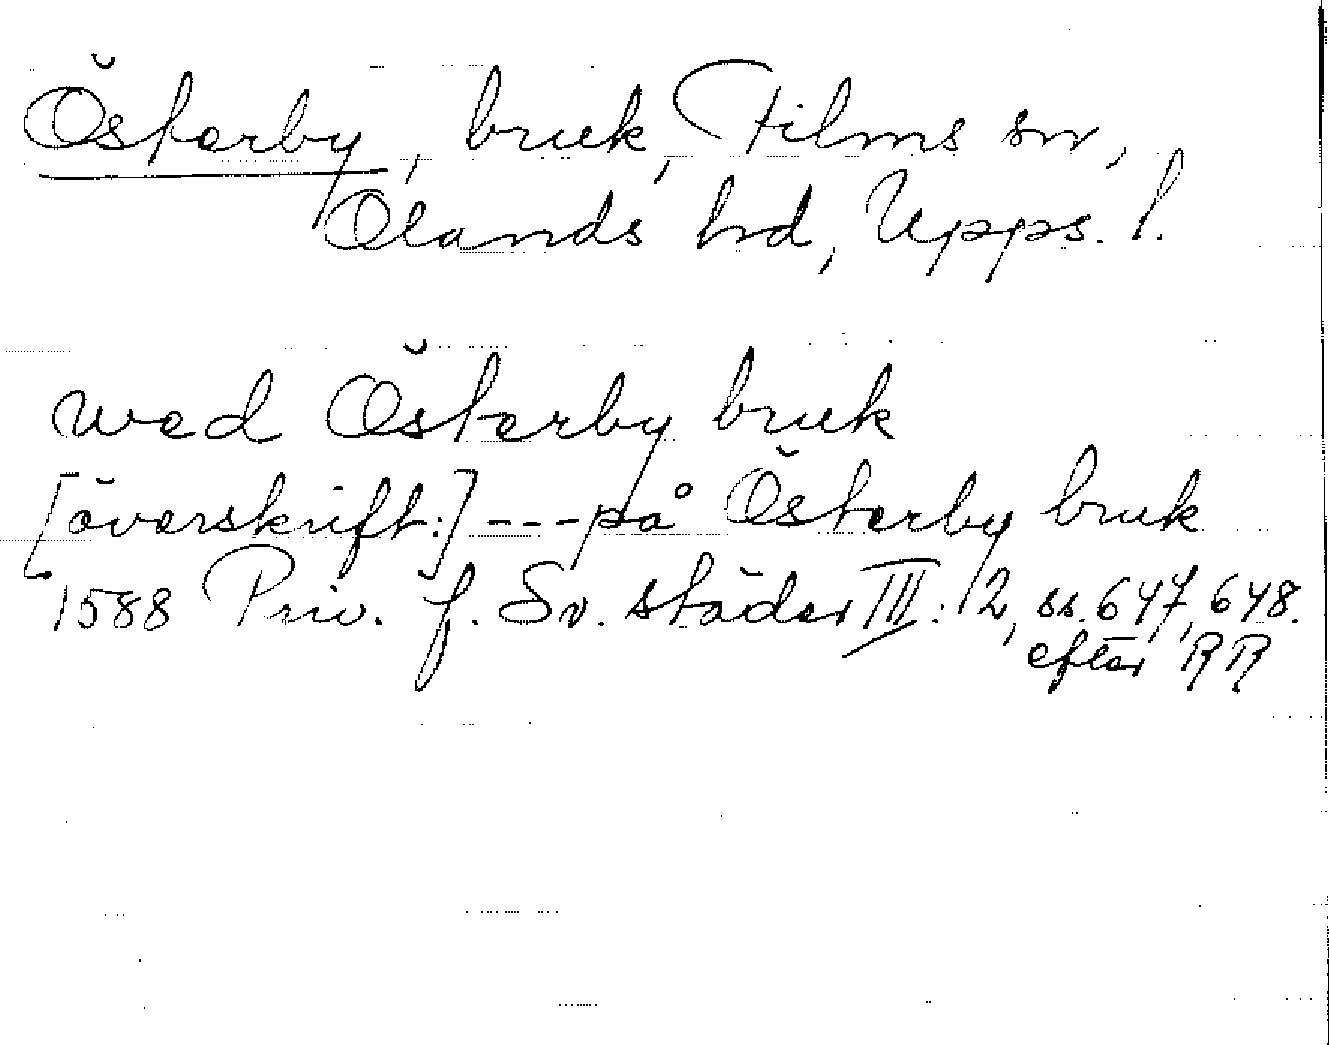 Österby, bruk, Films sn,
Olands hd, Upps. l.
wed Österby bruk
[överskrift:] --- på Österby bruk
1588 Priv. f. Sv. städer III: 2, ss. 647, 648.
efter RR